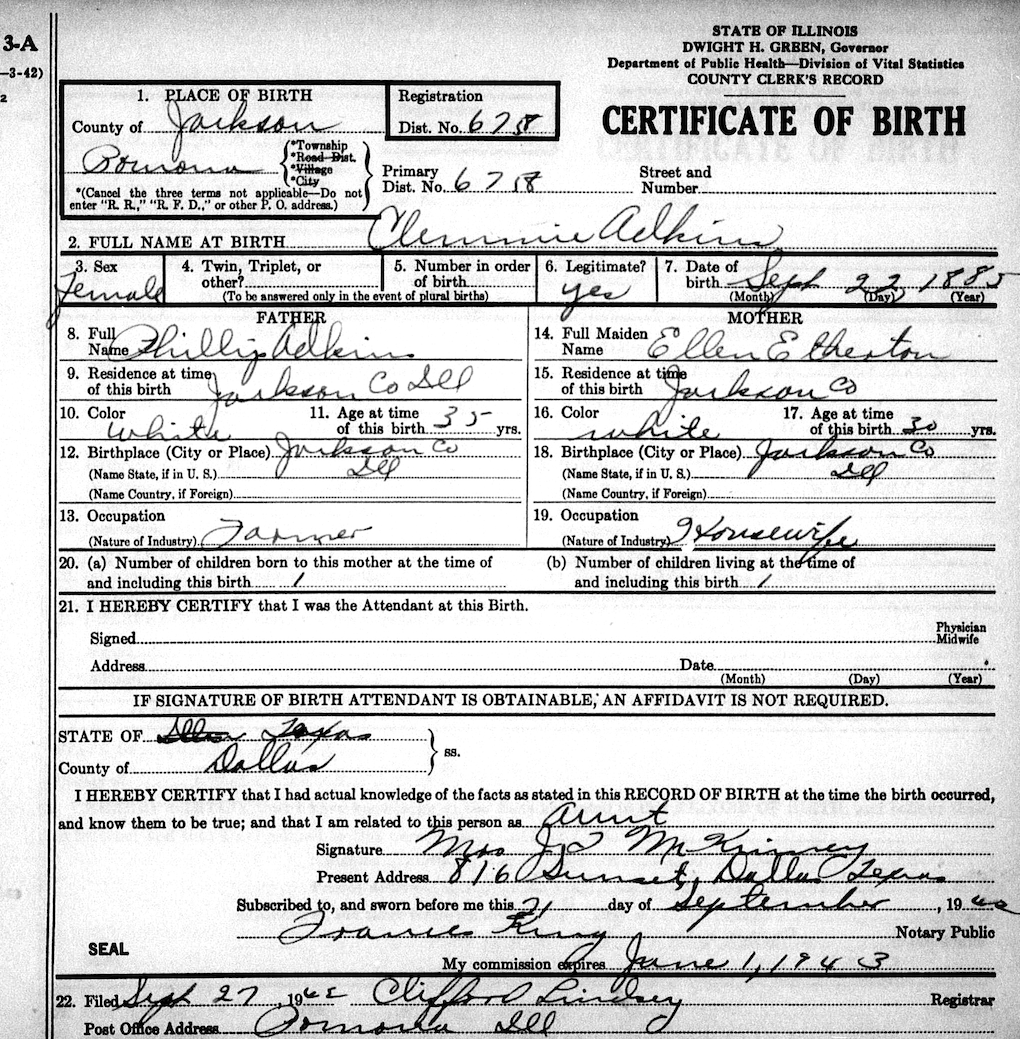 3-A
—3-42)
2
STATE OF ILLINOIS
DWIGHT H. GREEN, Governor
Department of Public Health—Division of Vital Statistics
COUNTY CLERK'S RECORD
CERTIFICATE OF BIRTH
1. PLACE OF BIRTH
County of Jackson
Registration
Dist. No. 6758
Pomona
*Township
*Road Dist.
*Village
*City
*(Cancel the three terms not applicable—Do not
enter "R. R.," "R. F. D.," or other P. O. address.)
Primary
Dist. No. 6758
Street and
Number
2. FULL NAME AT BIRTH Clemmie Adkins
3. Sex
Female
4. Twin, Triplet, or
other?
5. Number in order
of birth
(To be answered only in the event of plural births)
6. Legitimate?
yes
7. Date of
birth Sept 22 1885
(Month) (Day) (Year)
FATHER
8. Full
Name Phillip Adkins
9. Residence at time
of this birth Jackson Co Ill
10. Color
White
11. Age at time
of this birth 35 yrs.
12. Birthplace (City or Place) Jackson Co
(Name State, if in U. S.) Ill
(Name Country, if Foreign)
13. Occupation
(Nature of Industry) Farmer
MOTHER
14. Full Maiden
Name Ellen Etherton
15. Residence at time
of this birth Jackson Co
16. Color
White
17. Age at time
of this birth 30 yrs.
18. Birthplace (City or Place) Jackson Co
(Name State, if in U. S.) Ill
(Name Country, if Foreign)
19. Occupation
(Nature of Industry) Housewife
20. (a) Number of children born to this mother at the time of
and including this birth 1
(b) Number of children living at the time of
and including this birth 1
21. I HEREBY CERTIFY that I was the Attendant at this Birth.
Signed
Physician
Midwife
Address Date
(Month) (Day) (Year)
IF SIGNATURE OF BIRTH ATTENDANT IS OBTAINABLE, AN AFFIDAVIT IS NOT REQUIRED.
STATE OF Texas
County of Dallas
ss.
I HEREBY CERTIFY that I had actual knowledge of the facts as stated in this RECORD OF BIRTH at the time the birth occurred,
and know them to be true; and that I am related to this person as Aunt
Signature Mrs J T McKinney
Present Address 816 Sunset, Dallas Texas
Subscribed to, and sworn before me this 21 day of September, 1942
Frances King Notary Public
SEAL
My commission expires June 1, 1943
22. Filed Sept 27, 1942 Clifford Lindsey Registrar
Post Office Address Pomona Ill